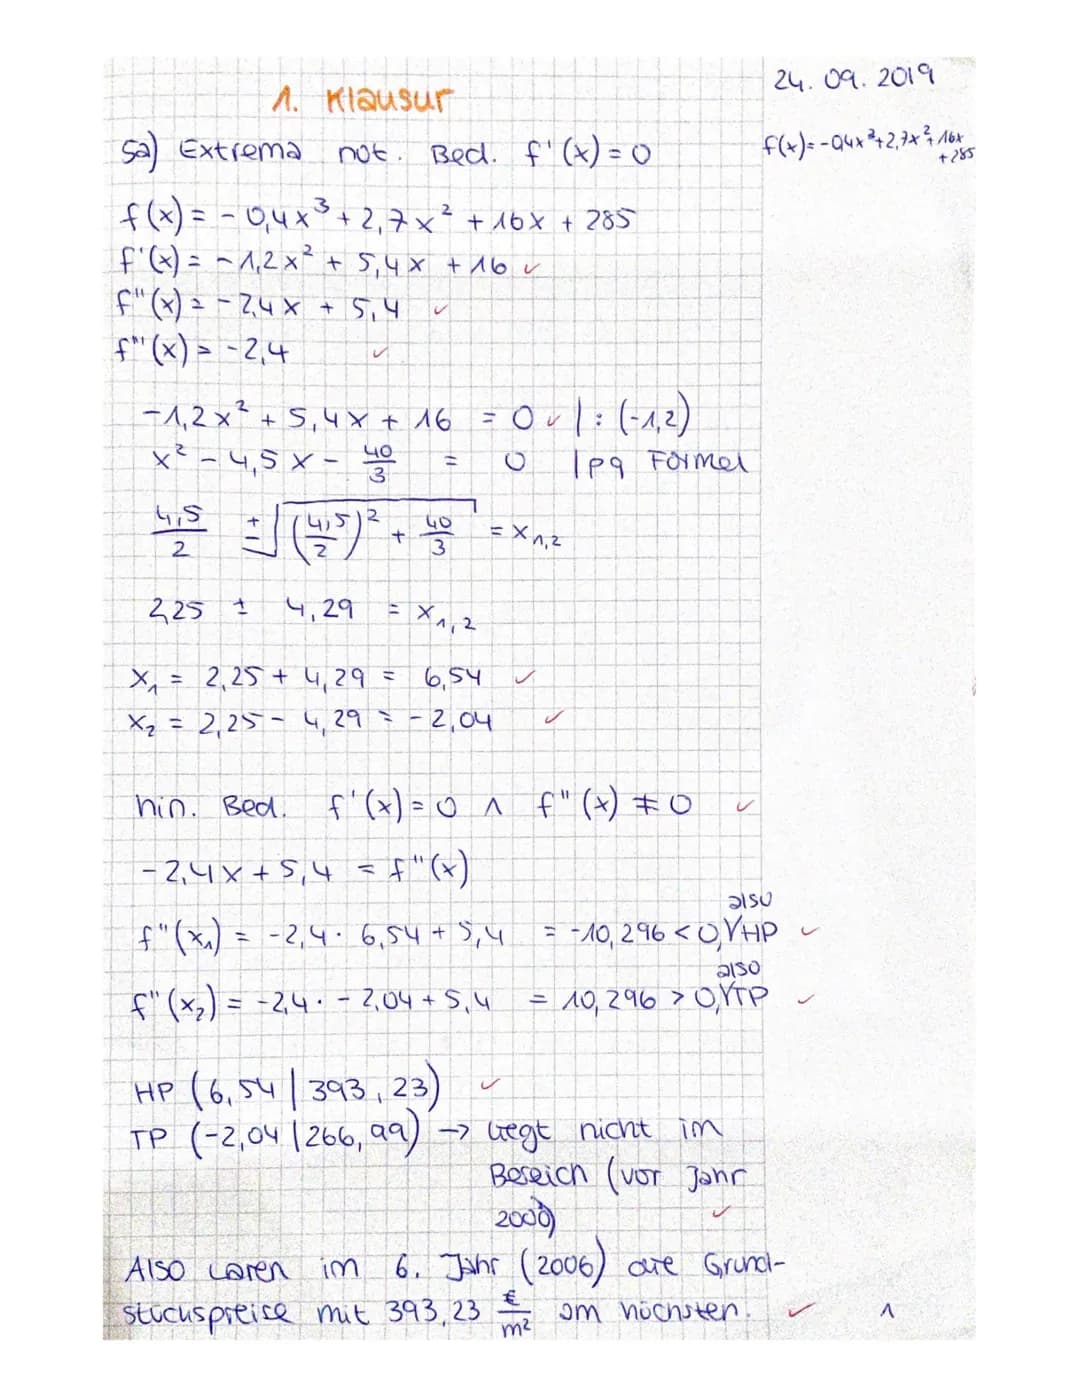 24. 09. 2019
1. Klausur
5a) Extrema not. Bed. f'(x) = 0
f(x) = -0,4x³ + 2,7x² + 16x + 285
f(x) = -0,4x³ + 2,7x² + 16x + 285
f'(x) = -1,2x² + 5,4x + 16 ✓
f''(x) = -2,4x + 5,4 ✓
f'''(x) = -2,4 ✓
-1,2x² + 5,4x + 16 = 0 ✓ | : (-1,2)
x² - 4,5x - 40/3 = 0 | pq Formel
4,5/2 ± √((4,5/2)² + 40/3) = x₁,₂
2,25 ± 4,29 = x₁,₂
x₁ = 2,25 + 4,29 = 6,54 ✓
x₂ = 2,25 - 4,29 = -2,04 ✓
hin. Bed. f'(x) = 0 ∧ f''(x) ≠ 0 ✓
-2,4x + 5,4 = f''(x)
f''(x₁) = -2,4 · 6,54 + 5,4 = -10,296 < 0, also HP ✓
f''(x₂) = -2,4 · -2,04 + 5,4 = 10,296 > 0, also TP ✓
HP (6,54 | 393,23) ✓
TP (-2,04 | 266,99) → liegt nicht im
Bereich (vor Jahr
2000) ✓
Also waren im 6. Jahr (2006) die Grund-
stückspreise mit 393,23 €/m² am höchsten. ✓ 1